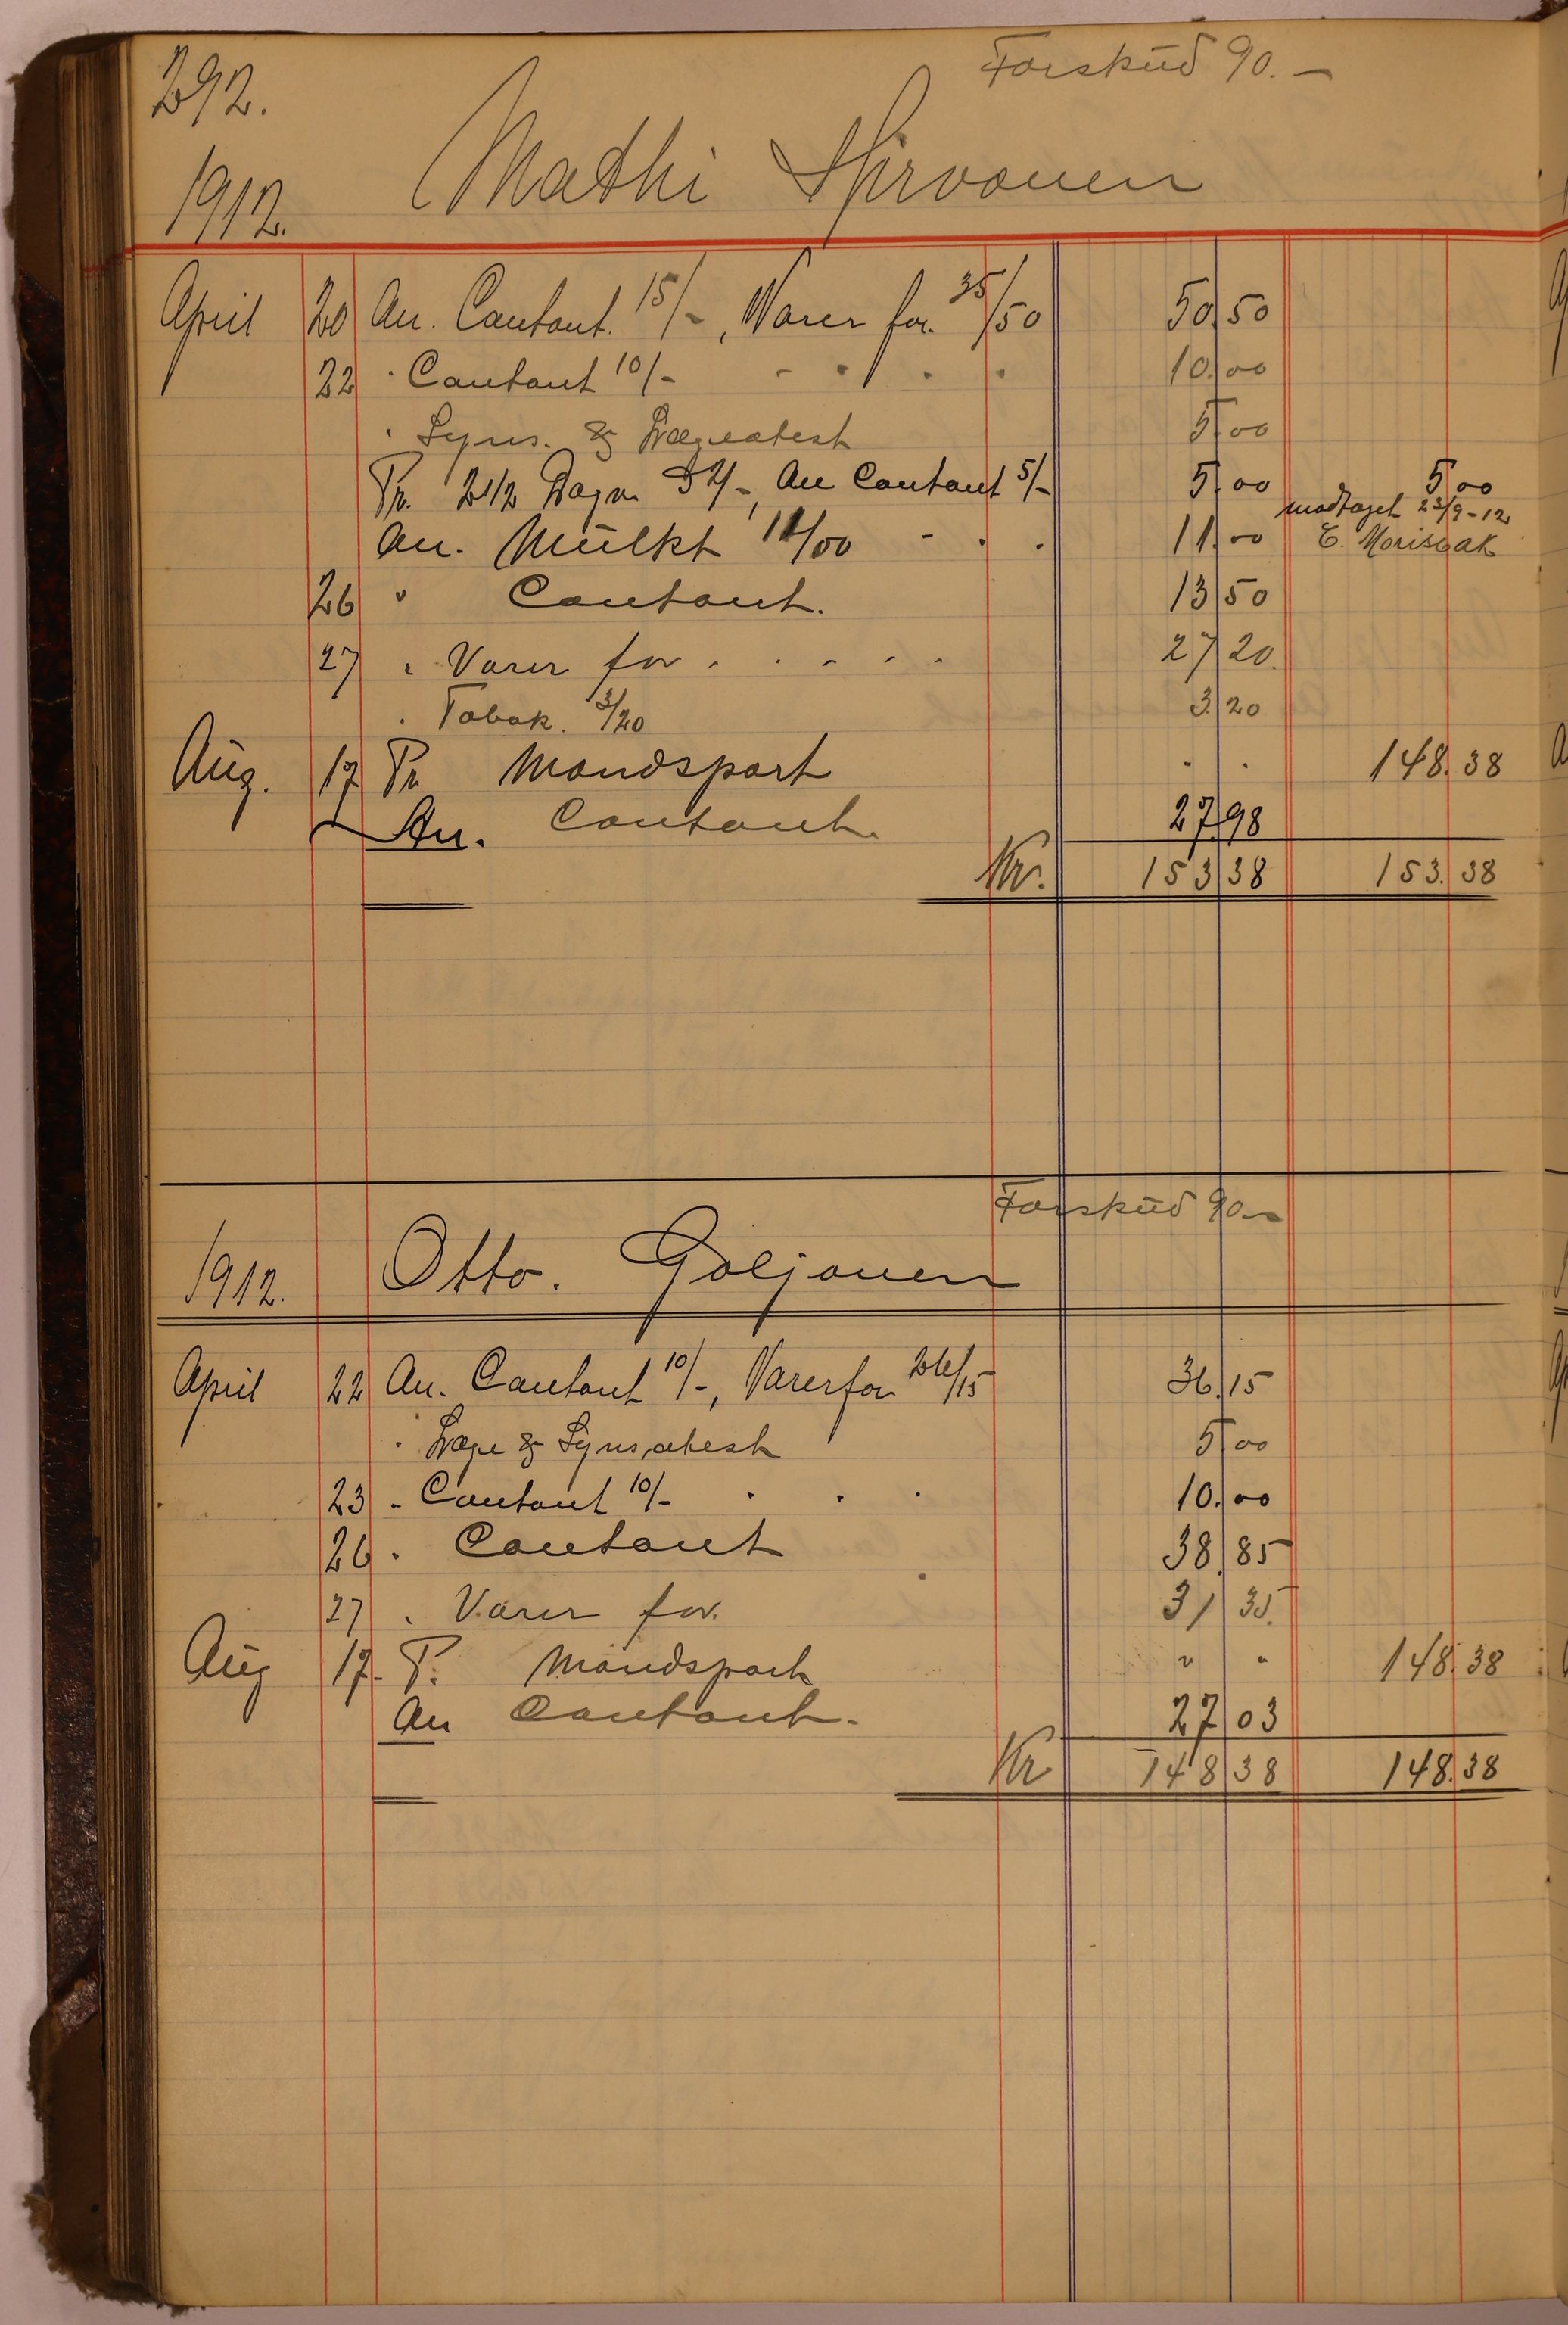 Forskud 90.—
292.
1912. Mathi Hirvonen
April 20 An. Contant. 15/-, Varer for. 35/50 50.50
22 " Contant 10/- 10.00
" Syns. & Lægeatest 5.00
Pr. 2 1/2 Dagv. à 2/-, An Contant 5/- 5.00 5.00
modtaget 23/9-12
An. Mülkt 11/00 11.00 E. Morisbak
26 " Contant. 13.50
27 " Varer for 27.20
" Tobak. 3/20 3.20
Aug. 17 Pr Mandspart " " 148.38
An. Contant. 27.98
Kr. 153.38 153.38
Forskud 90.—
1912. Otto. Goljonen
April 22 An. Contant 10/-, Varer for 26/15 36.15
" Læge & Synsatest 5.00
23 - Contant 10/- 10.00
26 " Contant 38.85
27 " Varer for. 31.35
Aug 17- P. Mandspart " " 148.38
An Contant. 27.03
Kr 148.38 148.38